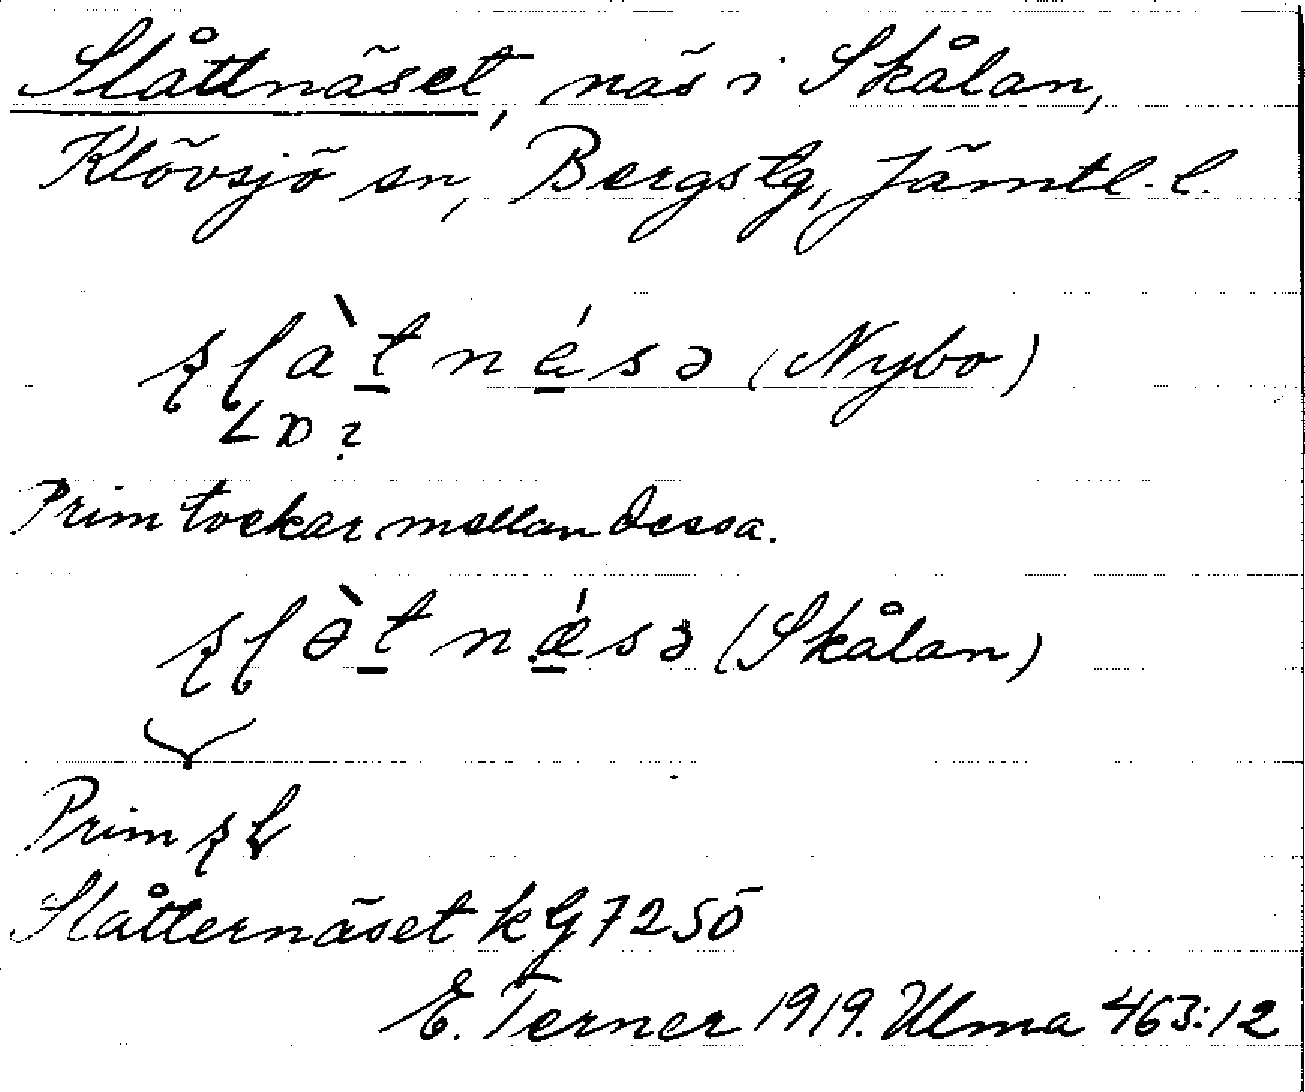 Slåttnäset, näs i Skålan,
Klövsjö sn, Bergs tg, Jämtl. l.
(Nybo)
Prim tvekar mellan dessa.
(Skålan)
Prim
Slåtternäset kG 72 SÖ
E. Terner 1919. Ulma 463:12